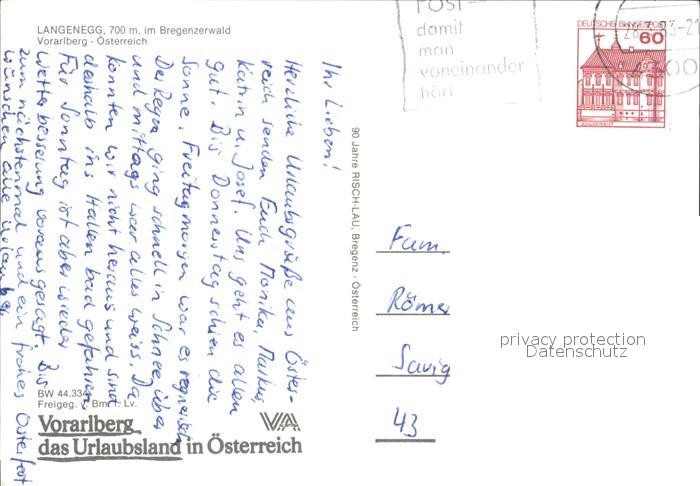 LANGENEGG, 700 m, im Bregenzerwald
Vorarlberg - Österreich
Ihr Lieben!
Herzliche Urlaubsgrüße aus Öster-
reich senden Euch Monika, Markus
Katrin u. Josef. Uns geht es allen
gut. Bis Donnerstag schien die
Sonne. Freitagmorgen war es regnerisch
Der Regen ging schnell in Schnee über
und mittags war alles weiss. Da
konnten wir nicht heraus und sind
deshalb ins Hallenbad gefahren
Für Sonntag ist aber wieder
Wetterbesserung vorausgesagt. Bis
zum nächstenmal und ein frohes Osterfest
wünschen alle Urlauber
BW 44.334
Freigeg. Bmf. Lv.
Vorarlberg
das Urlaubsland in Österreich
VA
90 Jahre RISCH-LAU, Bregenz - Österreich
POST-
damit
man
voneinander
hört
DEUTSCHE BUNDESPOST
60
Fam.
Römer
43
privacy protection
Datenschutz